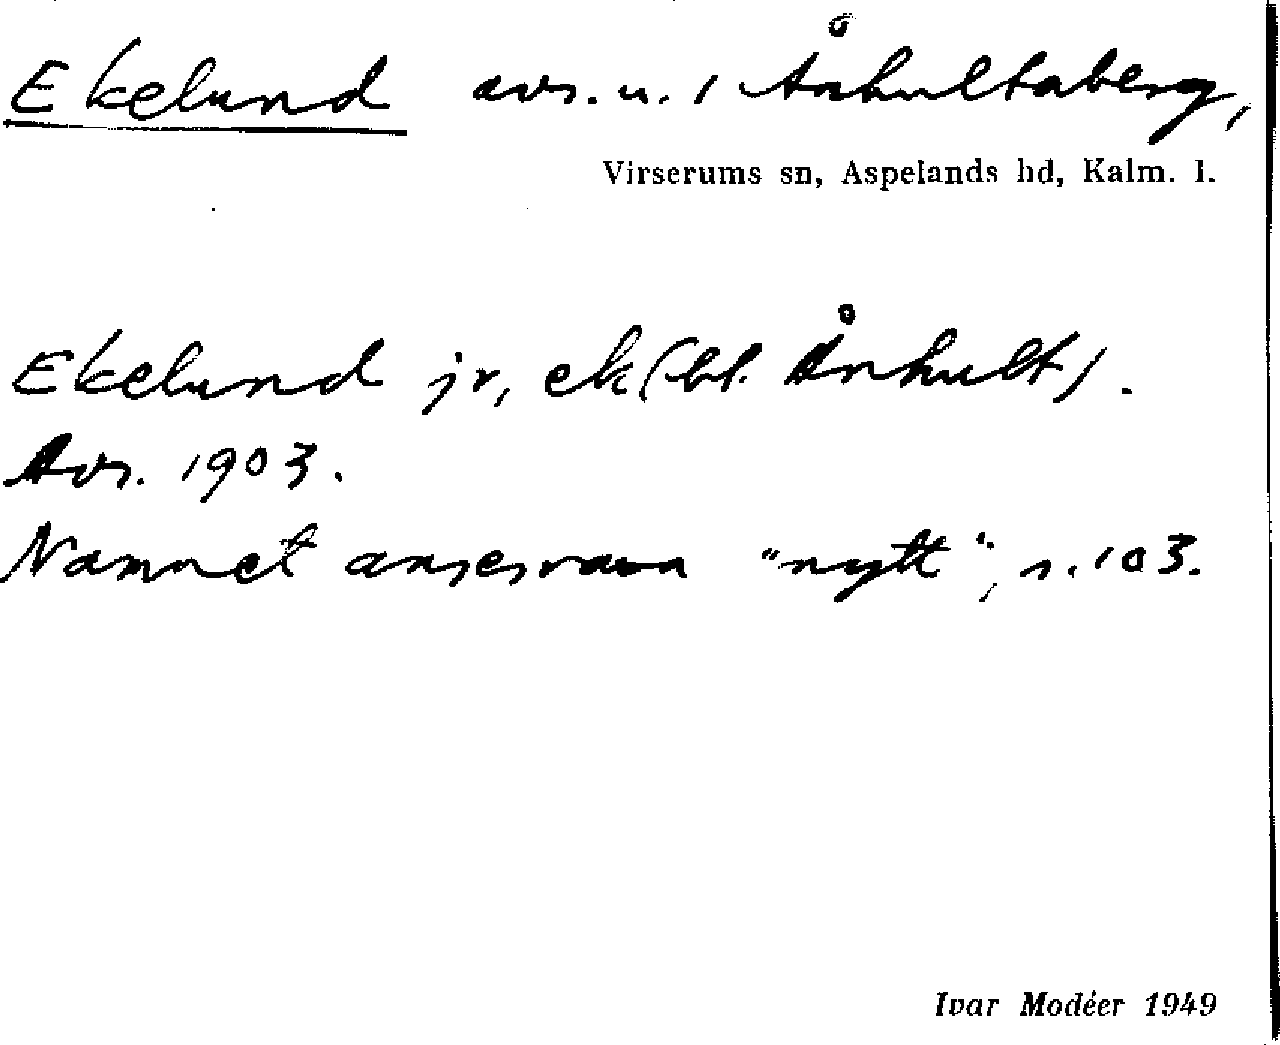 Ekelund avs. u. 1 Ånhultaberg,
Virserums sn, Aspelands hd, Kalm. l.
Ekelund jr, ek (bl. Ånhult).
Avs. 1903.
Namnet anses vara "nytt", s. 103.
Ivar Modéer 1949